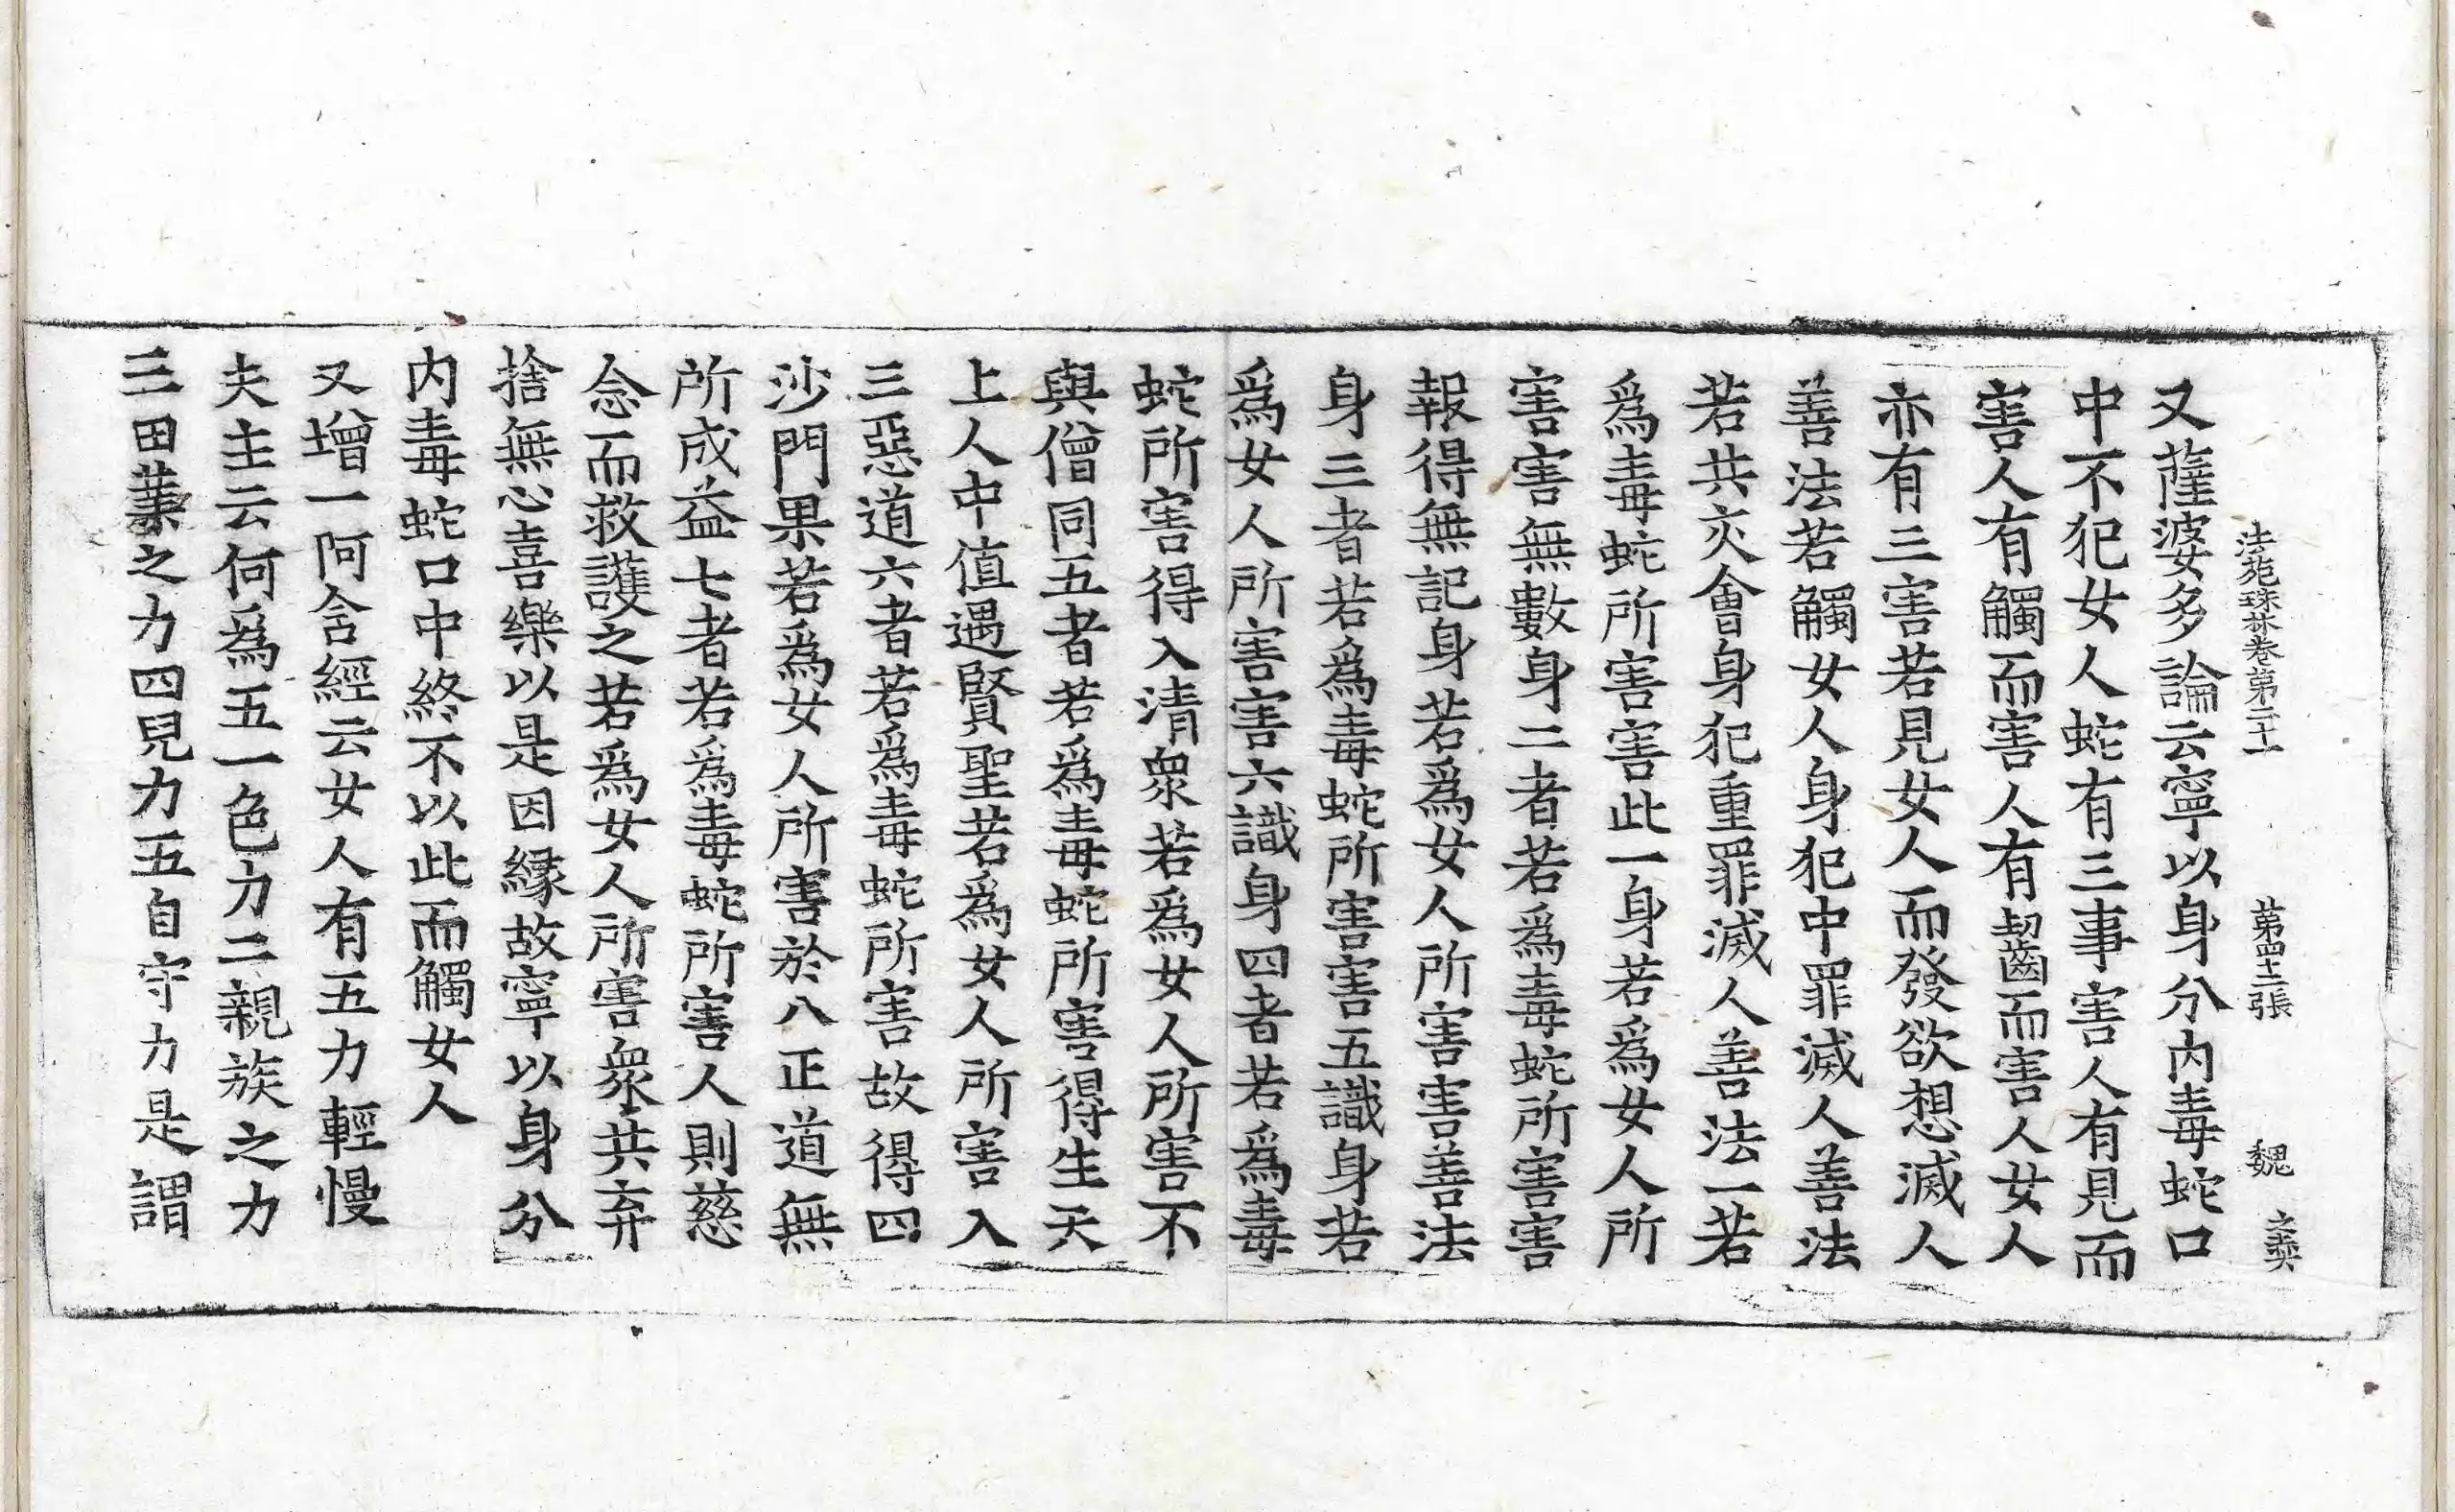 法苑珠林卷第二十一　第四十二張　魏　彝
又薩婆多論云寧以身分内毒蛇口
中不犯女人蛇有三事害人有見而
害人有觸而害人有齧而害人女人
亦有三害若見女人而發欲想滅人
善法若觸女人身犯中罪滅人善法
若共交會身犯重罪滅人善法一若
爲毒蛇所害害此一身若爲女人所
害害無數身二者若爲毒蛇所害害
報得無記身若爲女人所害害善法
身三者若爲毒蛇所害害五識身若
爲女人所害害六識身四者若爲毒
蛇所害得入清衆若爲女人所害不
與僧同五者若爲毒蛇所害得生天
上人中值遇賢聖若爲女人所害入
三惡道六者若爲毒蛇所害故得四
沙門果若爲女人所害於八正道無
所成益七者若爲毒蛇所害人則慈
念而救護之若爲女人所害衆共弃
捨無心喜樂以是因緣故寧以身分
内毒蛇口中終不以此而觸女人
又增一阿含經云女人有五力輕慢
夫主云何爲五一色力二親族之力
三田業之力四兒力五自守力是謂